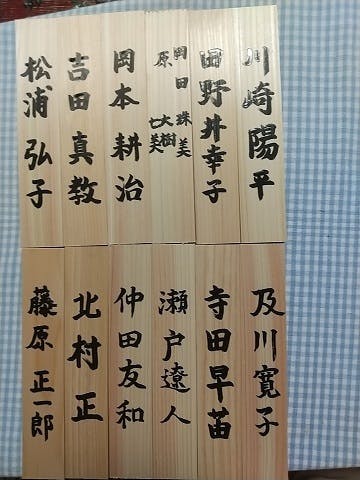 川崎陽平
田野井幸子
岡田珠美
原大樹
七美
岡本耕治
吉田真教
松浦弘子
及川寛子
寺田早苗
瀬戸遼人
仲田友和
北村正
藤原正一郎